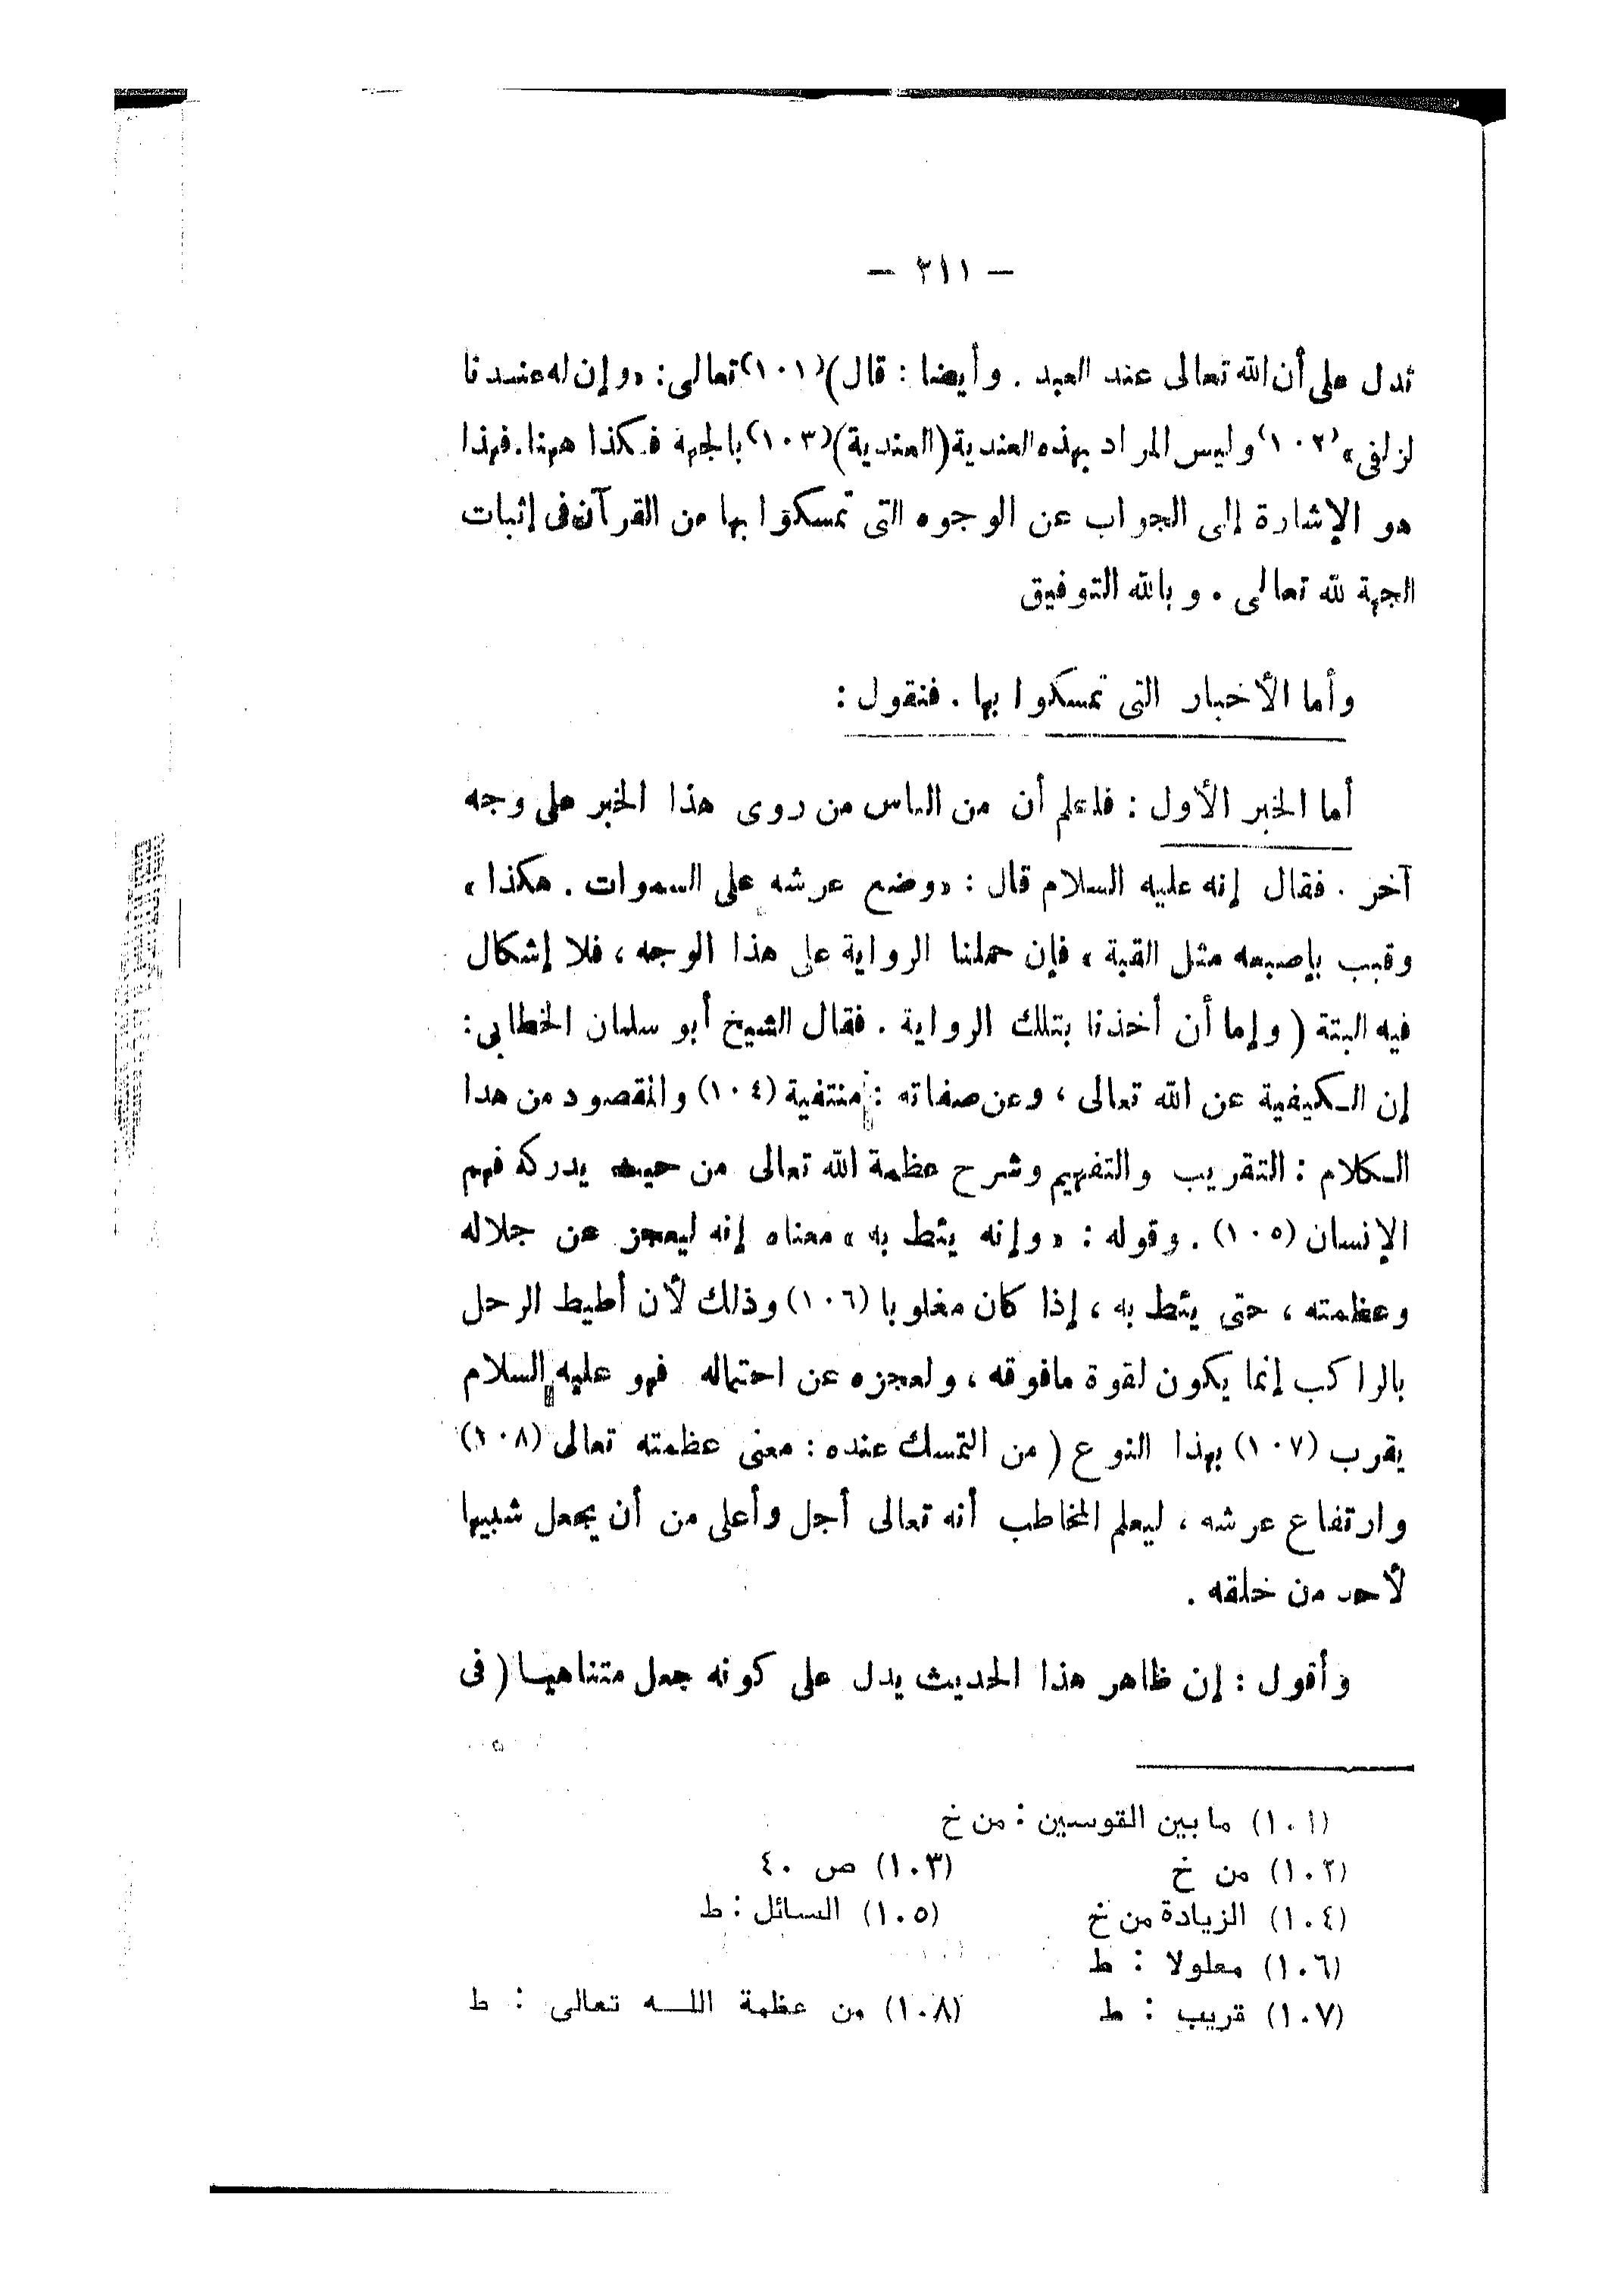 — ٢١١ —
تدل على أن الله تعالى عند العبد . وأيضا : قال)(١٠١)تعالى: «وإن له عندنا
لزلفى»(١٠٢)وليس المراد بهذه العندية(العندية)(١٠٣)بالجهة فكذا ههنا.فهذا
هو الإشارة إلى الجواب عن الوجوه التى تمسكوا بها من القرآن فى إثبات
الجهة لله تعالى . وبالله التوفيق
وأما الأخبار التى تمسكوا بها . فنقول :
أما الخبر الأول : فاعلم أن من الناس من روى هذا الخبر على وجه
آخر . فقال إنه عليه السلام قال : «وضع عرشه على السموات . هكذا»
وقبب بإصبعه مثل القبة» فإن حملنا الرواية على هذا الوجه ، فلا إشكال
فيه البتة ( وإما أن أخذنا بتلك الرواية . فقال الشيخ أبو سلمان الخطابى :
إن الكيفية عن الله تعالى ، وعن صفاته : منتفية (١٠٤) والمقصود من هذا
الكلام : التقريب والتفهيم وشرح عظمة الله تعالى من حيث يدركه فهم
الإنسان (١٠٥) . وقوله : «وإنه يئط به» معناه إنه ليعجز عن جلاله
وعظمته ، حتى يئط به ، إذا كان مغلوبا (١٠٦) وذلك لأن أطيط الرحل
بالراكب إنما يكون لقوة مافوقه ، ولعجزه عن احتماله فهو عليه السلام
يقرب (١٠٧) بهذا النوع ( من التمسك عنده : معنى عظمته تعالى (١٠٨)
وارتفاع عرشه ، ليعلم المخاطب أنه تعالى أجل وأعلى من أن يجعل شبيها
لأحد من خلقه .
وأقول : إن ظاهر هذا الحديث يدل على كونه جعل متناهيا ( فى
(١٠١) ما بين القوسين : من خ
(١٠٢) من خ (١٠٣) ص ٤٠
(١٠٤) الزيادة من خ (١٠٥) السائل : ط
(١٠٦) معلولا : ط
(١٠٧) قريب : ط (١٠٨) من عظمة الله تعالى : ط